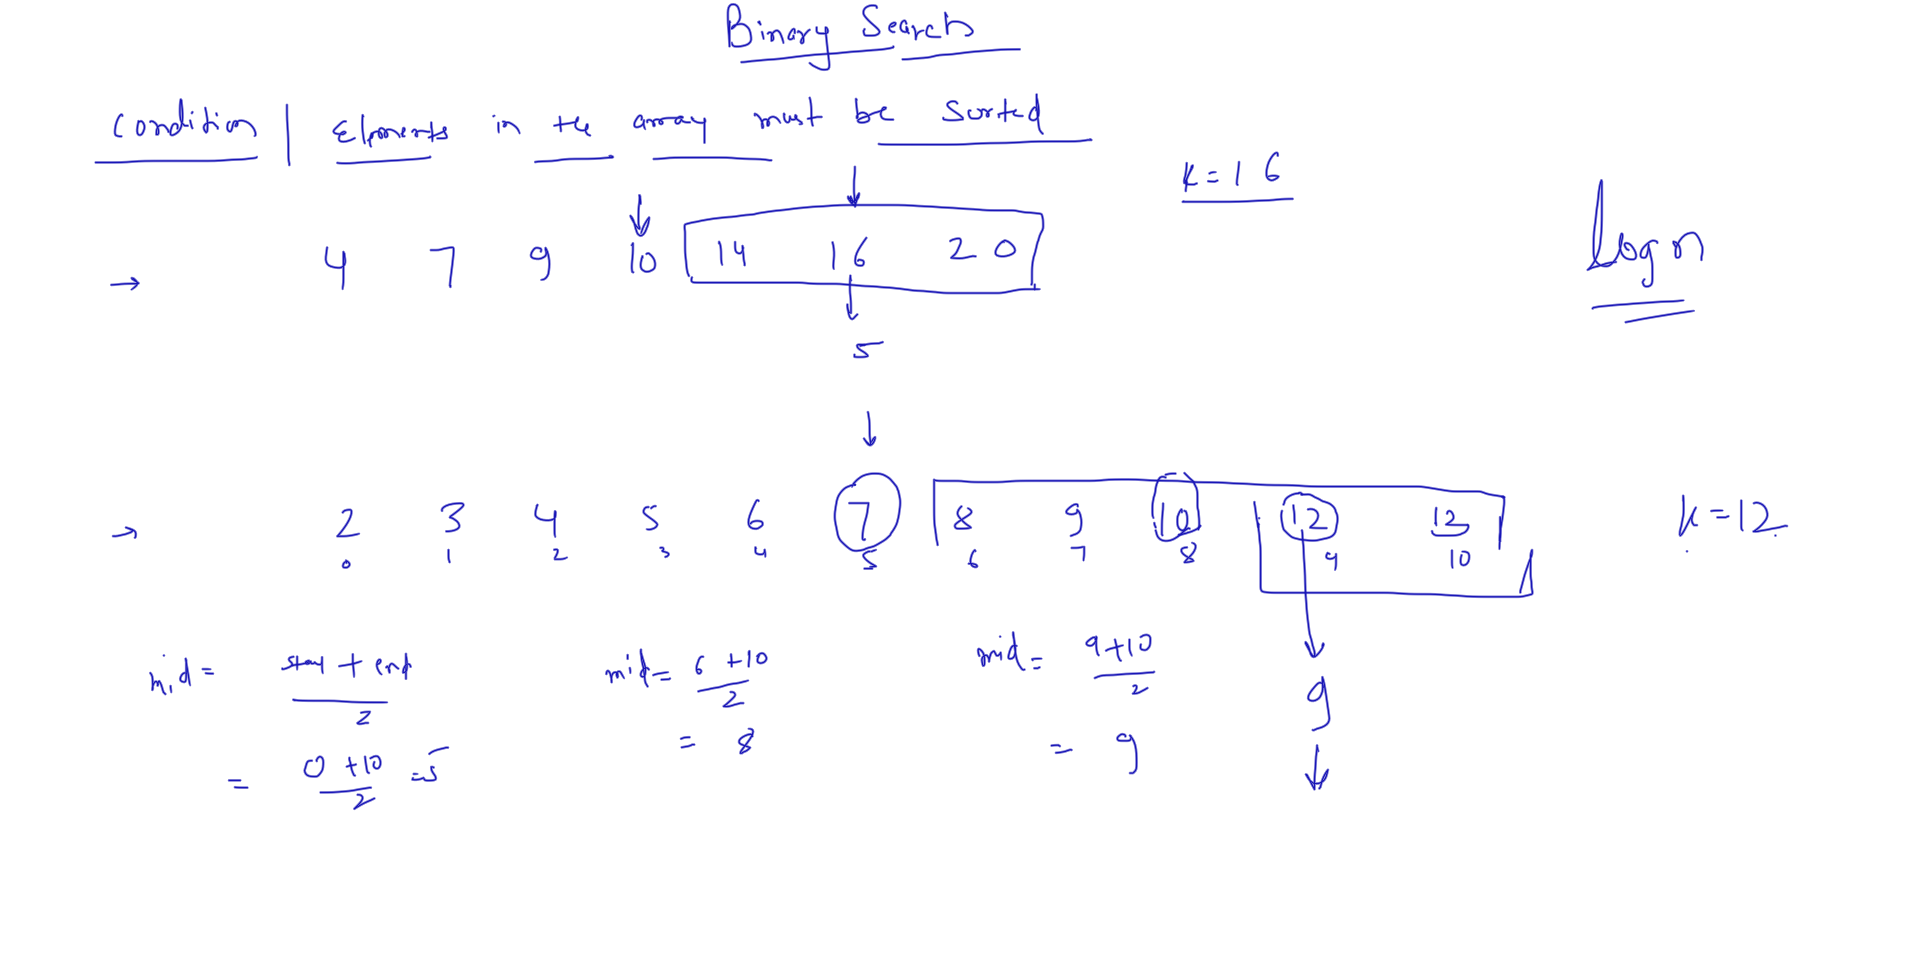 Binary Search
Condition | Elements in the array must be sorted
K = 16
→ 4 7 9 10 14 16 20
log n
5
→ 2 3 4 5 6 7 8 9 10 12 13 k = 12
0 1 2 3 4 5 6 7 8 9 10
mid = start + end / 2
= 0 + 10 / 2 = 5
mid = 6 + 10 / 2
= 8
mid = 9 + 10 / 2
= 9
9